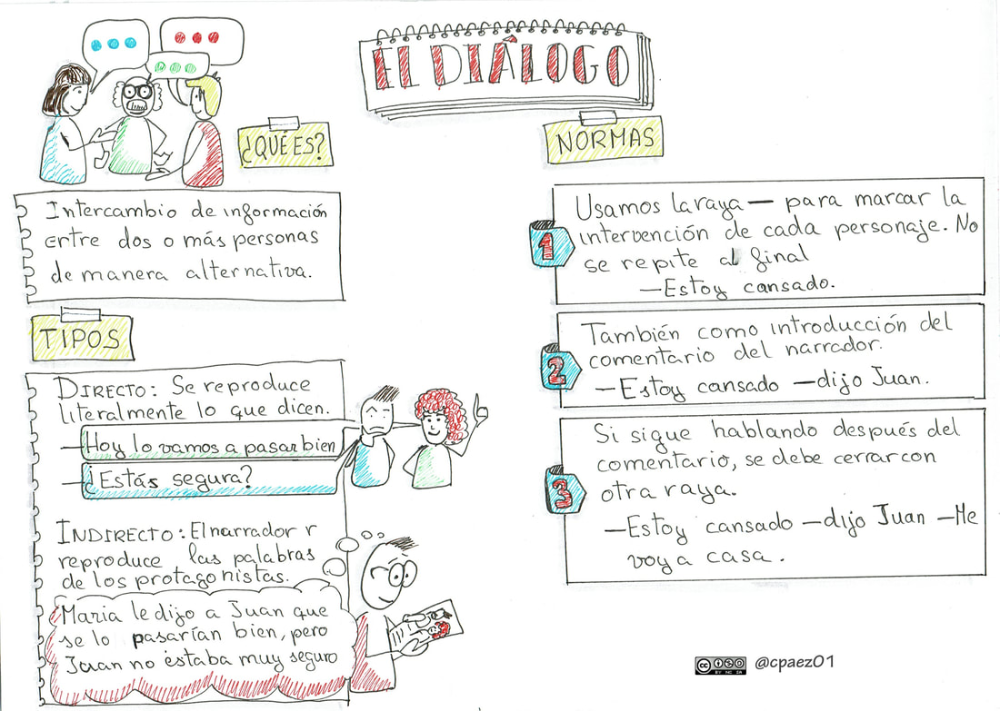 EL DIÁLOGO
¿QUÉ ES?
Intercambio de información
entre dos o más personas
de manera alternativa.
TIPOS
DIRECTO: Se reproduce
literalmente lo que dicen.
—Hoy lo vamos a pasar bien
—¿Estás segura?
INDIRECTO: El narrador r
reproduce las palabras
de los protagonistas.
Maria le dijo a Juan que
se lo pasarían bien, pero
Juan no estaba muy seguro
NORMAS
1
Usamos la raya — para marcar la
intervención de cada personaje. No
se repite al final
—Estoy cansado.
2
También como introducción del
comentario del narrador.
—Estoy cansado —dijo Juan.
3
Si sigue hablando después del
comentario, se debe cerrar con
otra raya.
—Estoy cansado —dijo Juan —Me
voy a casa.
CC BY NC SA @cpaez01